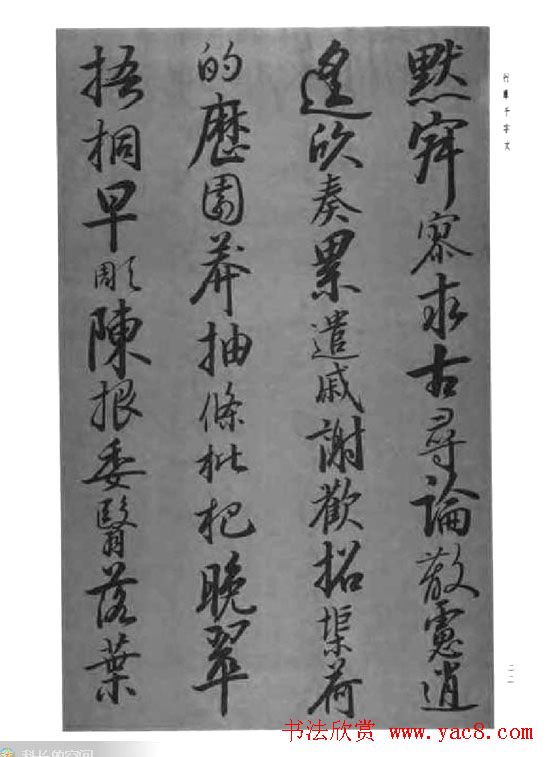 行書千字文
默寂寥求古尋論散慮逍
遙欣奏累遣戚謝歡招渠荷
的歷園莽抽條枇杷晚翠
梧桐早彫陳根委翳落葉
二二
书法欣赏 www.yac8.com